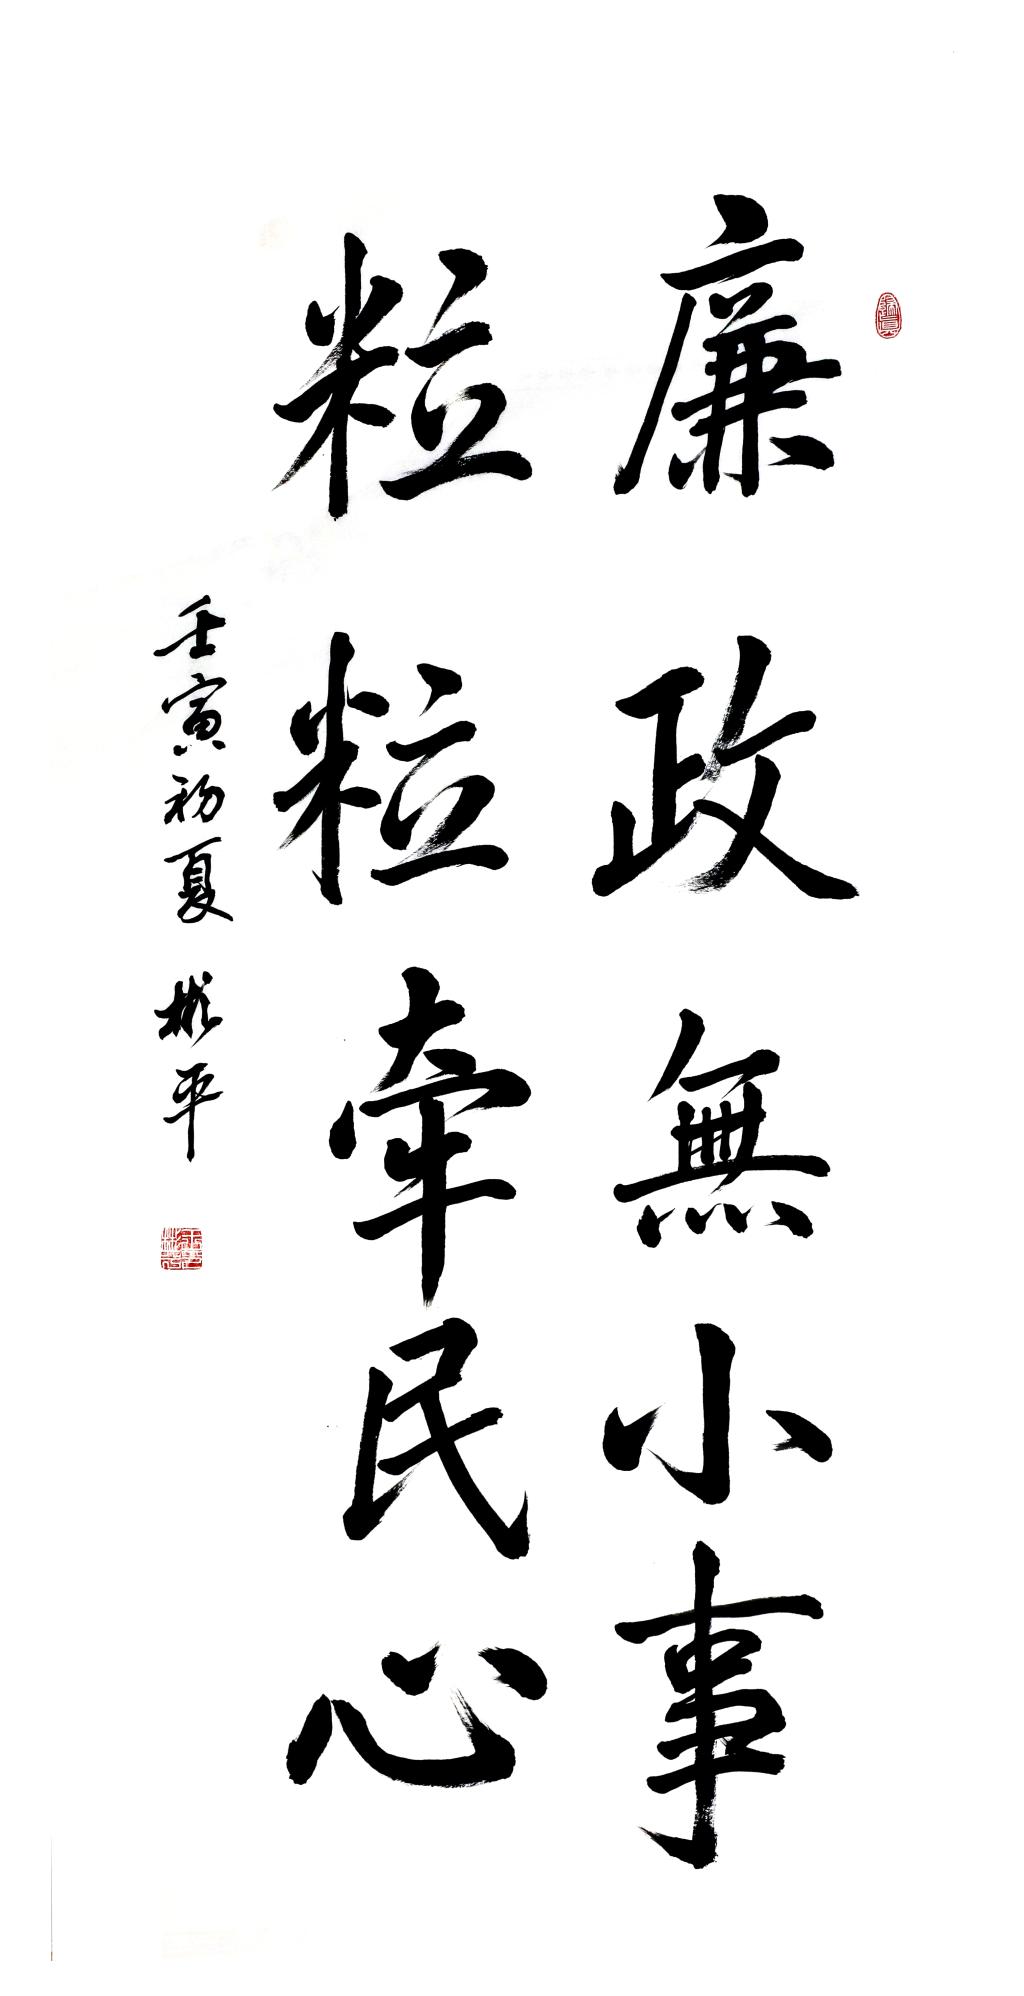 廉政無小事
粒粒牽民心
壬寅初夏 彬平